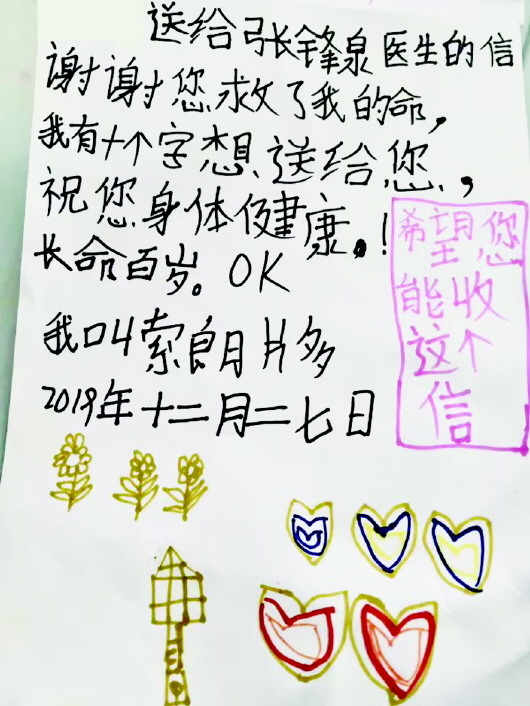 送给张锋泉医生的信
谢谢您救了我的命，
我有十个字想送给您，
祝您身体健康。！
长命百岁。OK
我叫索朗片多
2019年十二月二七日
希望您
能收
这个
信